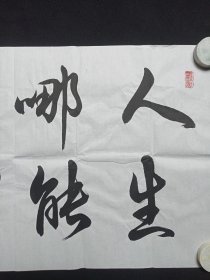 人生
哪能